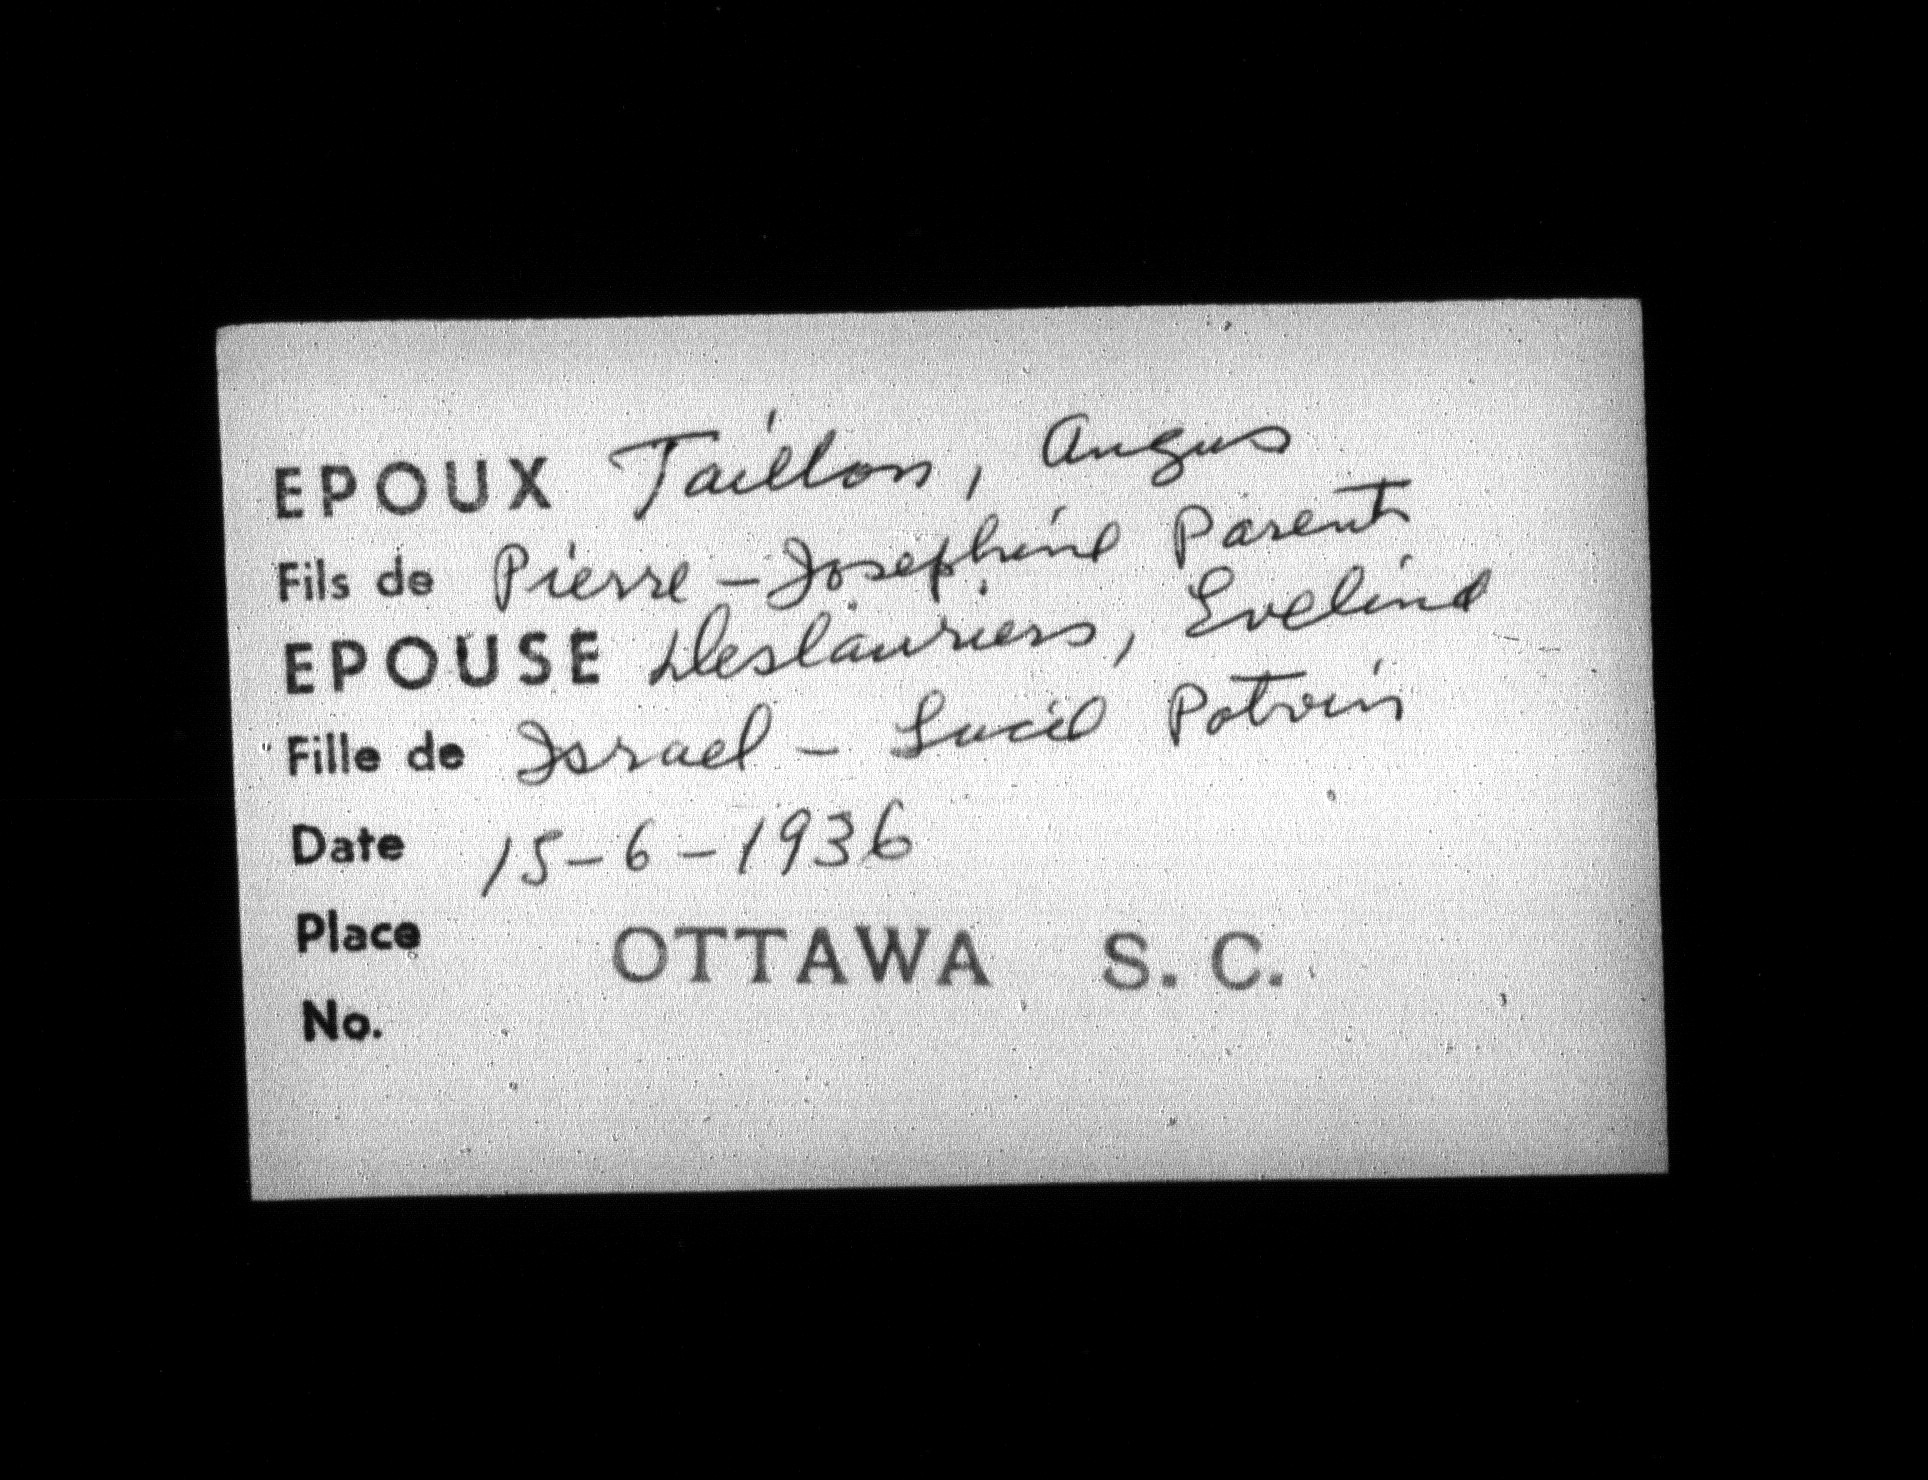 EPOUX Taillon, Angus
Fils de Pierre - Josephine Parent
EPOUSE Deslauriers, Eveline
Fille de Israel - Lucie Potvin
Date 15-6-1936
Place OTTAWA S. C.
No.